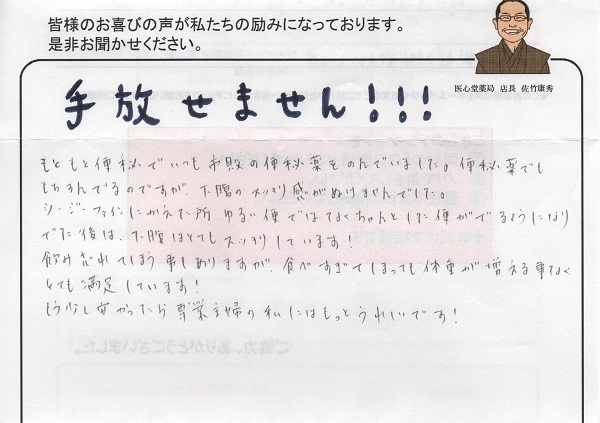 皆様のお喜びの声が私たちの励みになっております。
是非お聞かせください。
医心堂薬局 店長 佐竹康秀
手放せません!!!
もともと便秘でいつも市販の便秘薬をのんでいました。便秘薬でも
もちろんでるのですが、下腹のスッキリ感がぬけませんでした。
シージーファインにかえた所 ゆるい便ではなくちゃんとした便がでるようになり
でた後は、下腹はとてもスッキリしています!
飲み忘れてしまう事もありますが、食べすぎてしまっても体重が増える事なく
とても満足しています!
もう少し安かったら専業主婦の私にはもっとうれしいです!
ご協力、ありがとうございました。